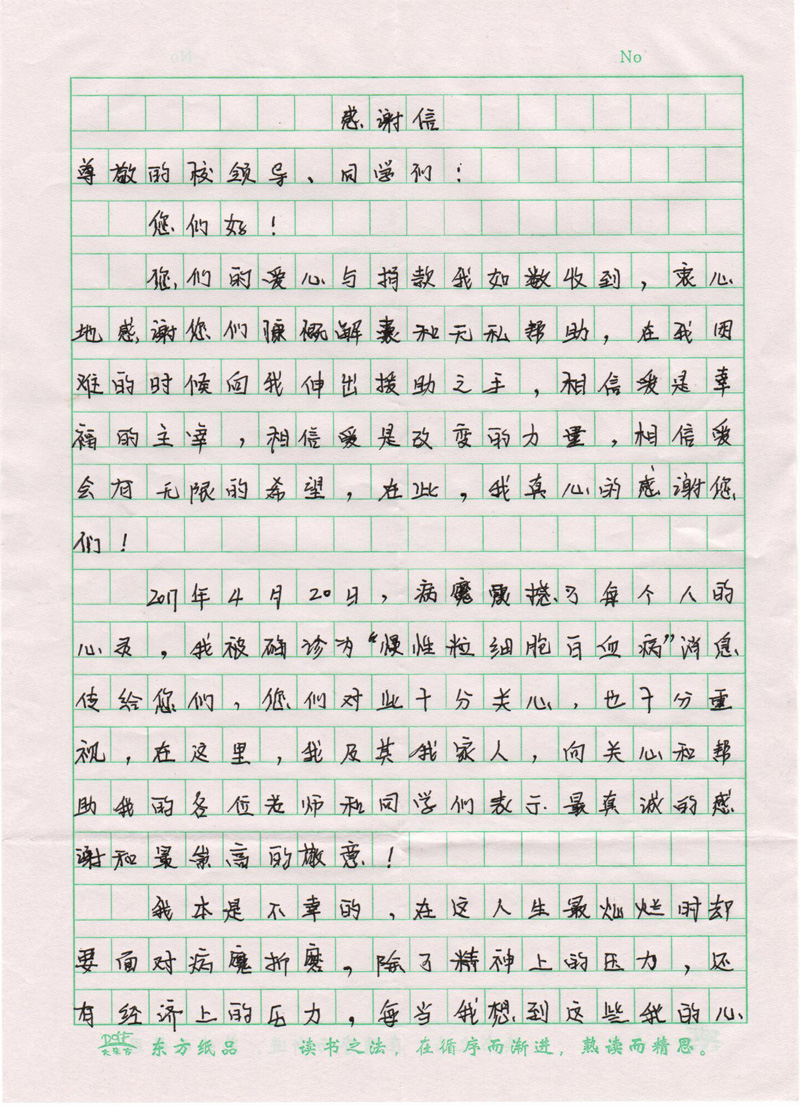 No
感谢信
尊敬的校领导、同学们！
您们好！
您们的爱心与捐款我如数收到，衷心
地感谢您们慷慨解囊和无私帮助，在我困
难的时候向我伸出援助之手，相信爱是幸
福的主宰，相信爱是改变的力量，相信爱
会有无限的希望，在此，我真心的感谢您
们！
2017年4月20日，病魔震撼了每个人的
心灵，我被确诊为“慢性粒细胞白血病”消息
传给您们，您们对此十分关心，也十分重
视，在这里，我及其我家人，向关心和帮
助我的各位老师和同学们表示最真诚的感
谢和最崇高的敬意！
我本是不幸的，在这人生最灿烂时却
要面对病魔折磨，除了精神上的压力，还
有经济上的压力，每当我想到这些我的心
东方纸品 读书之法，在循序而渐进，熟读而精思。